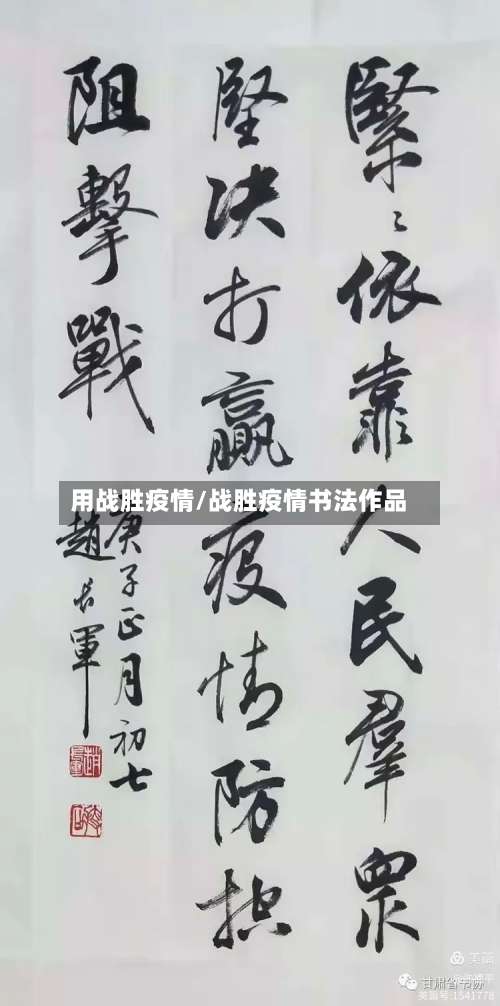 緊〻依靠人民羣眾
堅决打贏疫情防控
阻擊戰
庚子正月初七
趙長軍
用战胜疫情/战胜疫情书法作品
美篇
甘肃省书协
美篇号:1541778